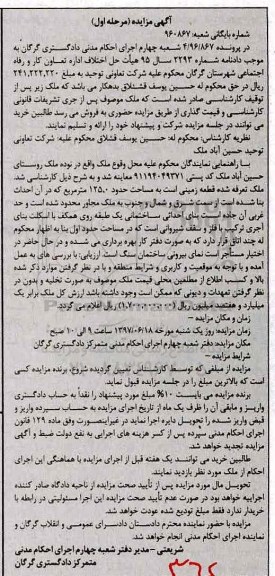 آگهی مزایده (مرحله اول)
شماره بایگانی شعبه: ۹۶۰۸۶۷
در پرونده ۴/۹۶/۸۶۷ شعبه چهارم اجرای احکام مدنی دادگستری گرگان به
موجب دادنامه شماره ۲۲۹۳ سال ۹۵ هیأت حل اختلاف اداره تعاون کار و رفاه
اجتماعی شهرستان گرگان محکوم علیه شرکت تعاونی توحید به مبلغ ۲۴۱,۲۲۲,۲۲۰
ریال در حق محکوم له حسین یوسف قشلاق بدهکار می باشد که ملک زیر پس از
توقیف کارشناسی صادر شده است که ملک موصوف پس از جری تشریفات قانونی
کارشناسی و قیمت گذاری از طریق مزایده حضوری به فروش می رسد طالبین خرید
می توانند در جلسه مزایده شرکت و پیشنهاد خود را ارائه و تسلیم نمایند.
نظریه کارشناس: محکوم له: حسین یوسف قشلاق محکوم علیه: شرکت تعاونی
توحید حسین آباد ملک
با راهنمایی نمایندگان محکوم علیه محل وقوع ملک واقع در نوده ملک روستای
حسین آباد ملک کد پستی ۹۱۱۹۴۰۴۹۳۷۱ معاینه شد و به شرح ذیل کارشناسی شد:
ملک تعرفه شده قطعه زمینی است به مساحت حدود ۱۲۵,۰ مترمربع که در آن احداث
بنا شده است از سمت شرق و شمال و جنوب به ملک مجاور محدود شده است و حد
غربی آن جاده است بنای احداثی ساختمانی یک طبقه روی همکف با اسکلت بنای
آجری ترکیب با فاز و سقف شیروانی است که در مساحت حدود اول بنا به اظهار محکوم
له چند اتاق قرار دارد که به صورت دفتر کار بهره برداری می شده و در حال حاضر در
اختیار مستأجر است نمای بیرونی ساختمان سنگ است. ارزیابی: با بررسی های به عمل
آمده و با توجه به موقعیت و کاربری و شرایط منطقه و با در نظر گرفتن موارد ذکر شده
بالا و کسب اطلاع از مطلعین محلی قیمت ملک موصوف به صورت تخلیه و بدون در
نظر گرفتن تعهدات و دیونی که ممکن است وجود داشته باشد ارزش کل ملک برابر یک
میلیارد و هفتصد میلیون ریال (۱,۷۰۰,۰۰۰,۰۰۰) ریال اعلام می گردد.
زمان و مکان مزایده -
زمان مزایده: روز یک شنبه مورخه ۱۳۹۷/۰۶/۱۸ ساعت ۹ الی ۱۰ صبح
مکان مزایده: دفتر شعبه چهارم اجرای احکام مدنی متمرکز دادگستری گرگان
شرایط مزایده -
مزایده از مبلغی که توسط کارشناس تعیین گردیده شروع، برنده مزایده کسی
است که بالاترین مبلغ را در جلسه مزایده قبول نماید.
برنده مزایده می بایست ۱۰% مبلغ مورد پیشنهاد را نقداً به حساب دادگستری
واریز و مابقی آن را ظرف یک ماه از تاریخ اجرای مزایده به حساب سپرده واریز و
قبض واریز شده را تحویل دایره اجرا نماید در غیراینصورت وفق ماده ۱۲۹ قانون
اجرای احکام مدنی سپرده پس از کسر هزینه های اجرایی به نفع دولت ضبط و آگهی
مزایده تجدید خواهد شد.
طالبین خرید می توانند یک هفته قبل از اجرای مزایده با هماهنگی این اجرای
احکام از ملک مورد نظر بازدید نمایند.
تحویل مال مورد مزایده پس از تأیید صحت مزایده از ناحیه دادگاه صادر کننده
اجراییه خواهد بود در صورت عدم تأیید صحت مزایده این اجرا مسئولیتی در رابطه با
خریدار ندارد فقط مبلغ تودیع شده عودت خواهد شد.
مزایده با حضور نماینده محترم دادستان دادسرای عمومی و انقلاب گرگان و
نماینده اجرای احکام مدنی انجام خواهد شد.
شریعتی - مدیر دفتر شعبه چهارم اجرای احکام مدنی
متمرکز دادگستری گرگان